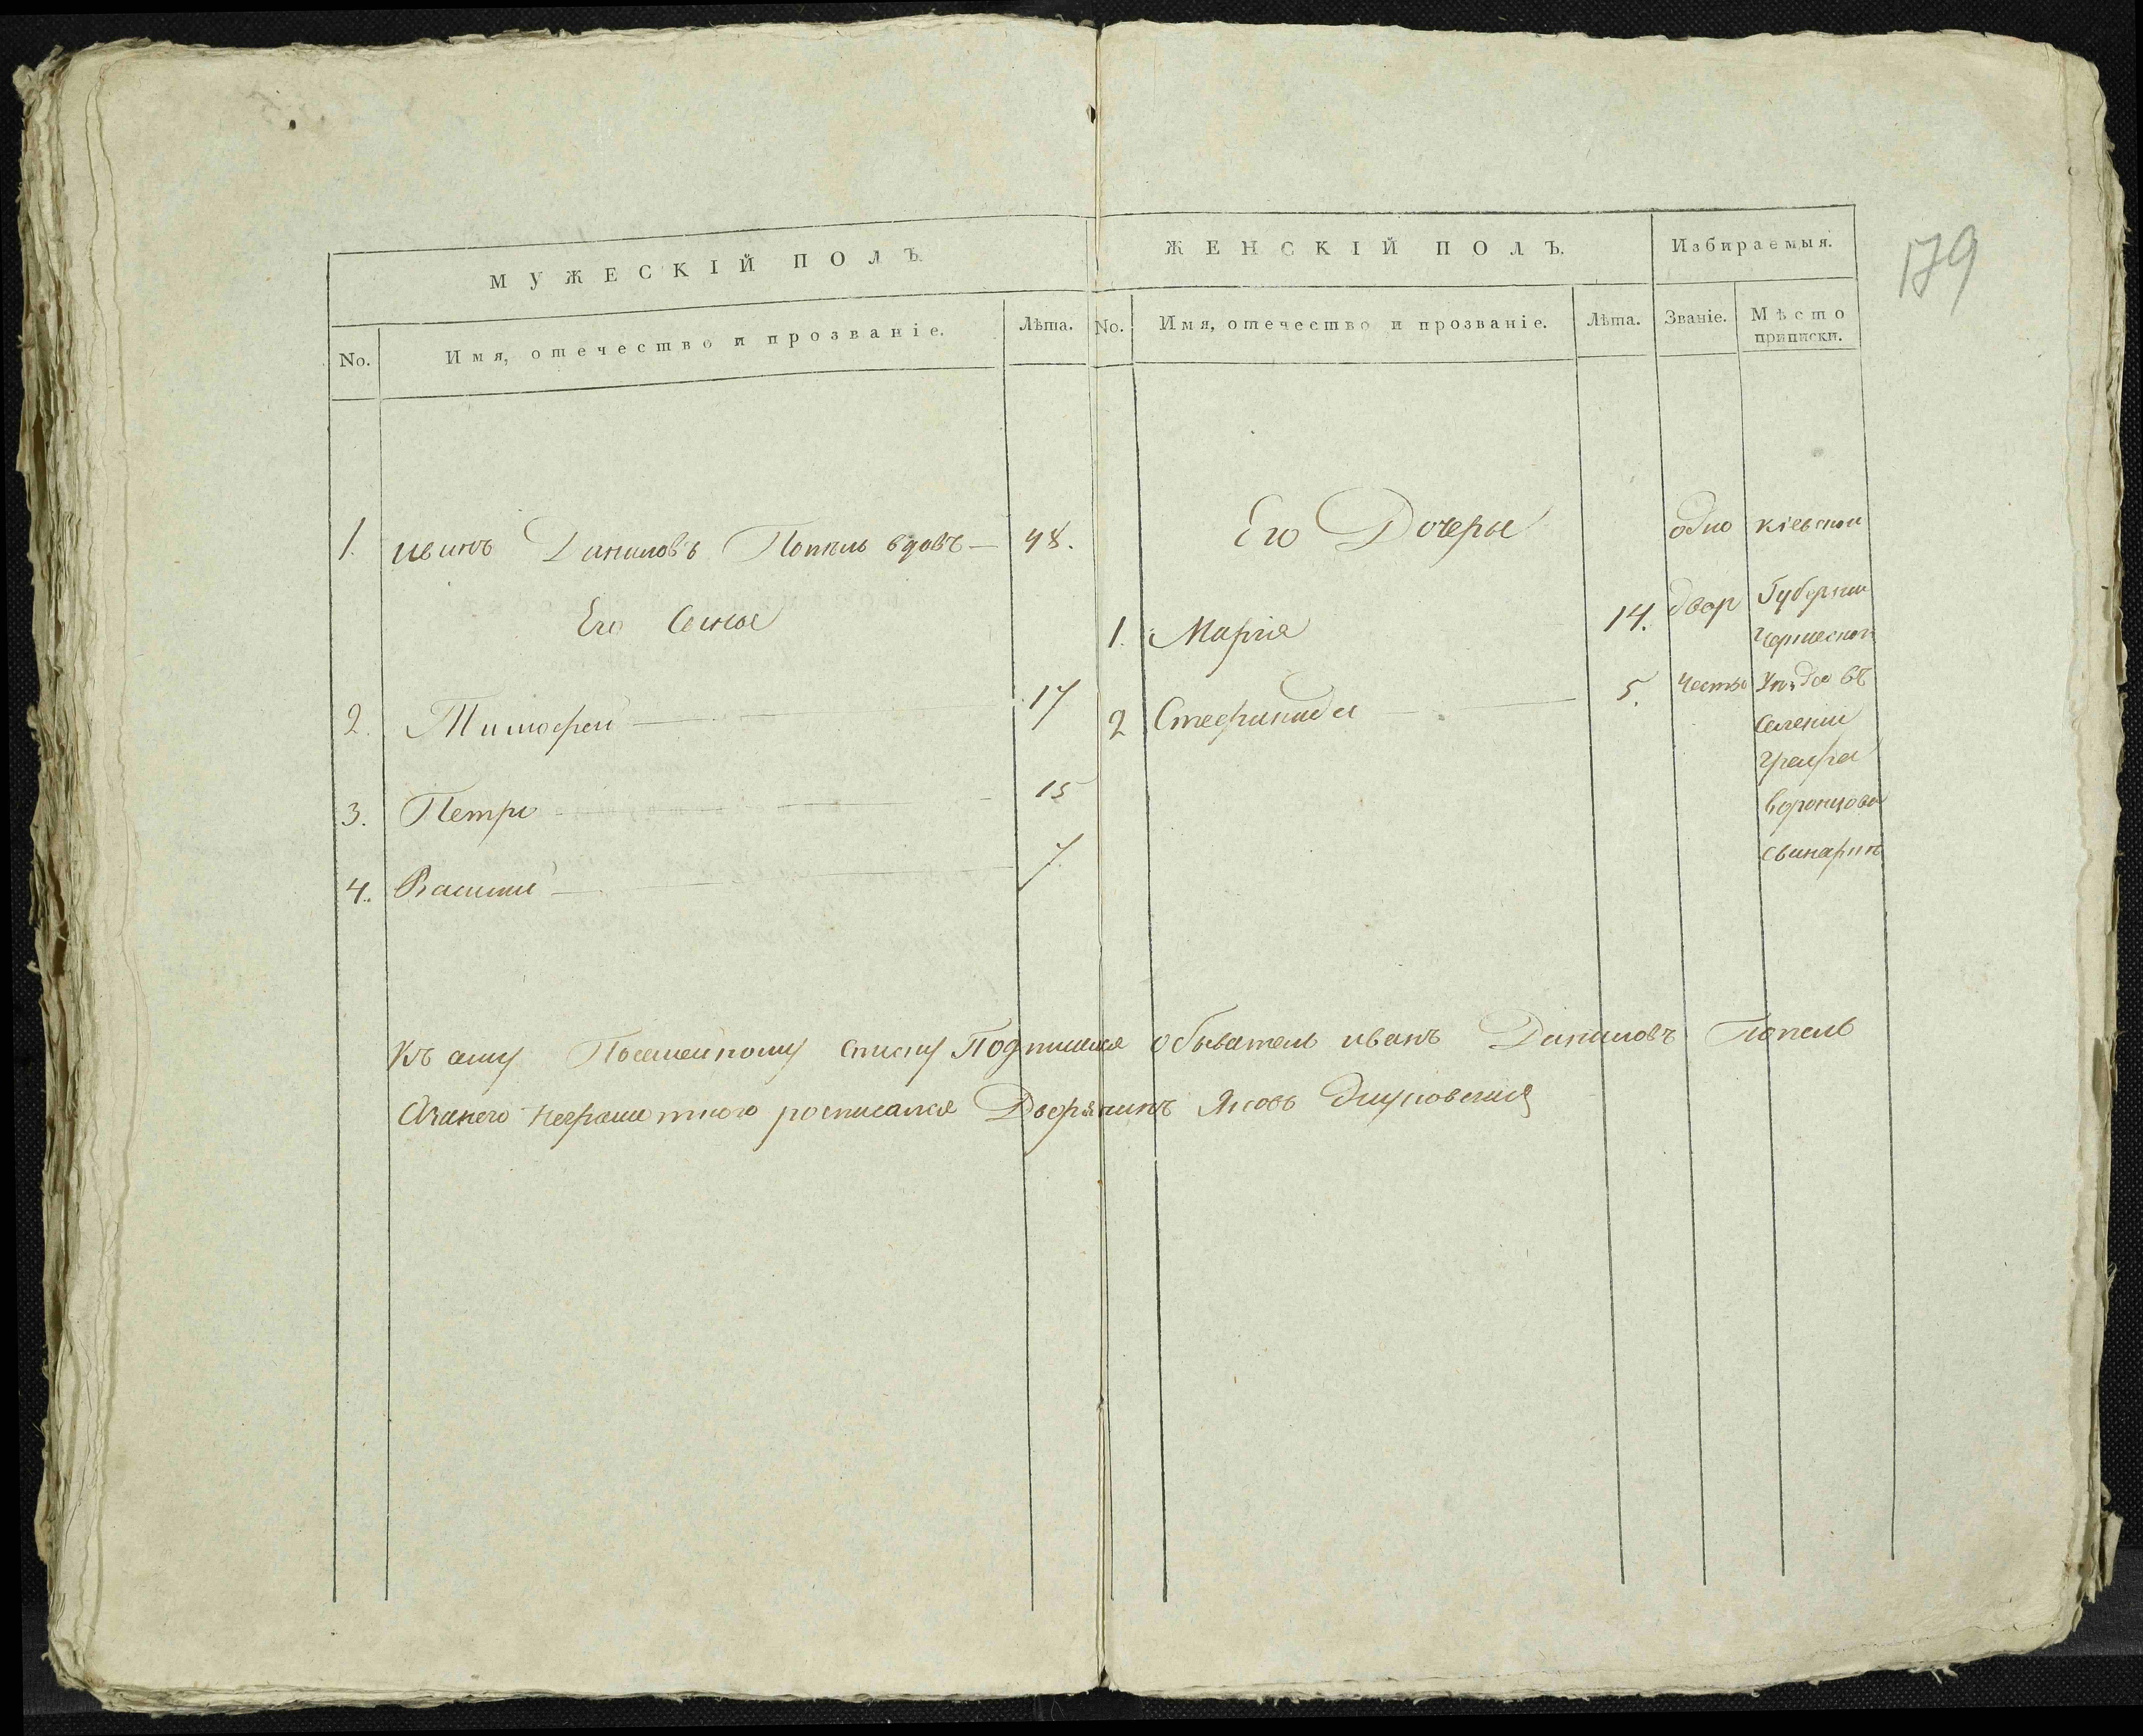 МУЖЕСКІЙ ПОЛЪ.
No. Имя, отечество и прозваніе. Лѣта.
1. иванъ Даниловъ Попель вдовъ — 48.
Его Сыны
2. Тимофей — 17
3. Петро — 15
4. Василий — 7
ЖЕНСКІЙ ПОЛЪ. Избираемыя.
No. Имя, отечество и прозваніе. Лѣта. Званіе. Мѣсто приписки.
Его Дочеры
1. Марія 14.
2 Стефанида — 5.
одно
двор
Чество
кіевской
Губерніи
Черкаской
Уездое въ
Селеніи
Графа
Воронцова
Свинаркѣ
179
Къ сему Посемейному списку Подписался обыватель иванъ Даниловъ Попель
Азанего неграмотного росписался Дворянинъ Яковъ